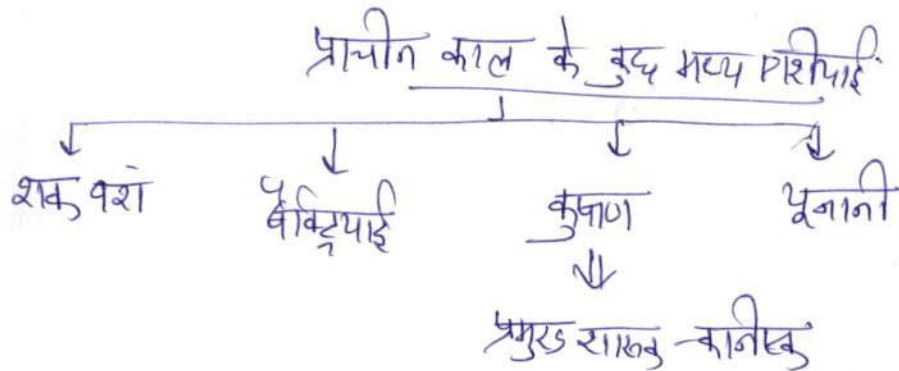 प्राचीन काल के कुछ मध्य एशीयाई
शक वशं बैक्ट्रियाई कुषाण यूनानी
प्रमुख शासक - कनिष्क